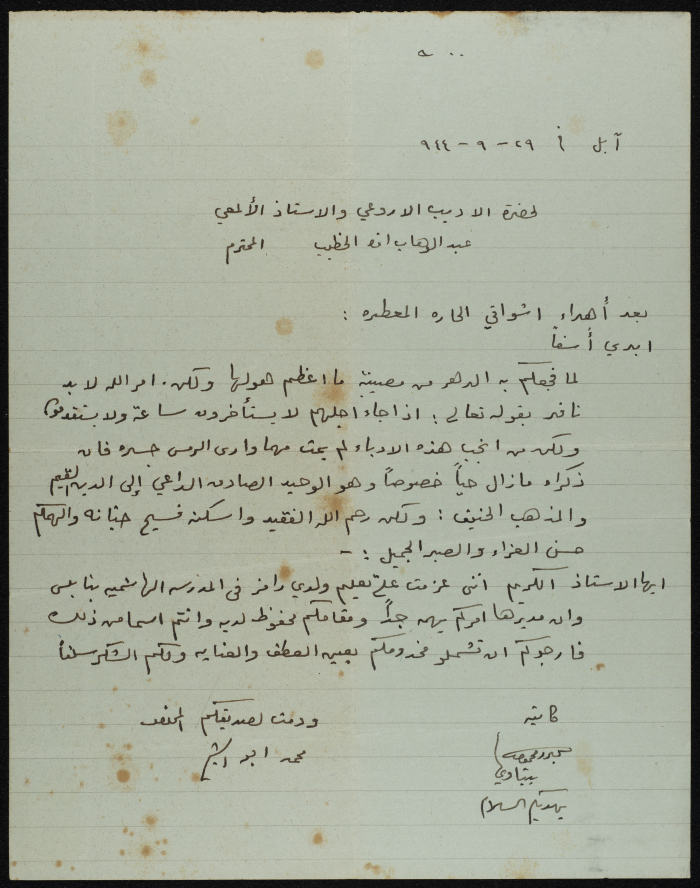 ٥٠٠
آبل في ٢٩ - ٩ - ٩٤٤
لحضرة الاديب الاروعي والاستاذ الألمعي
عبد الوهاب الخطيب المحترم
بعد أهداء اشواقي الحاره المعطره :
ابدي أسفاً
لما فجعكم به الدهر من مصيبة ما اعظم هولها ولكن . امر الله لا بد
نافذ بقوله تعالى : اذا جاء اجلهم لا يستأخرون ساعة ولا يستقدمون
ولكن من انجب هذه الادباء لم يمت مهما وارى الرمس جسده فان
ذكراه مازال حياً خصوصاً وهو الوحيد الصادق الداعي إلى الدين القيم
والمذهب الحنيف : ولكن رحم الله الفقيد واسكنه فسيح جنانه والهمكم
حسن العزاء والصبر الجميل : -
ايها الاستاذ الكريم انني عزمت على تعليم ولدي رامز في المدرسه الهاشميه بنابلس
وان مديرها امركم يهمه جداً ومقامكم محفوظ لديه وانتم اسما من ذلك
فارجوكم ان تشملو مخدومكم بعين العطف والعنايه ولكم الشكر سلفاً
كاتبه ودمت لصديقكم المخلص
محمد ابو
يهديكم السلام